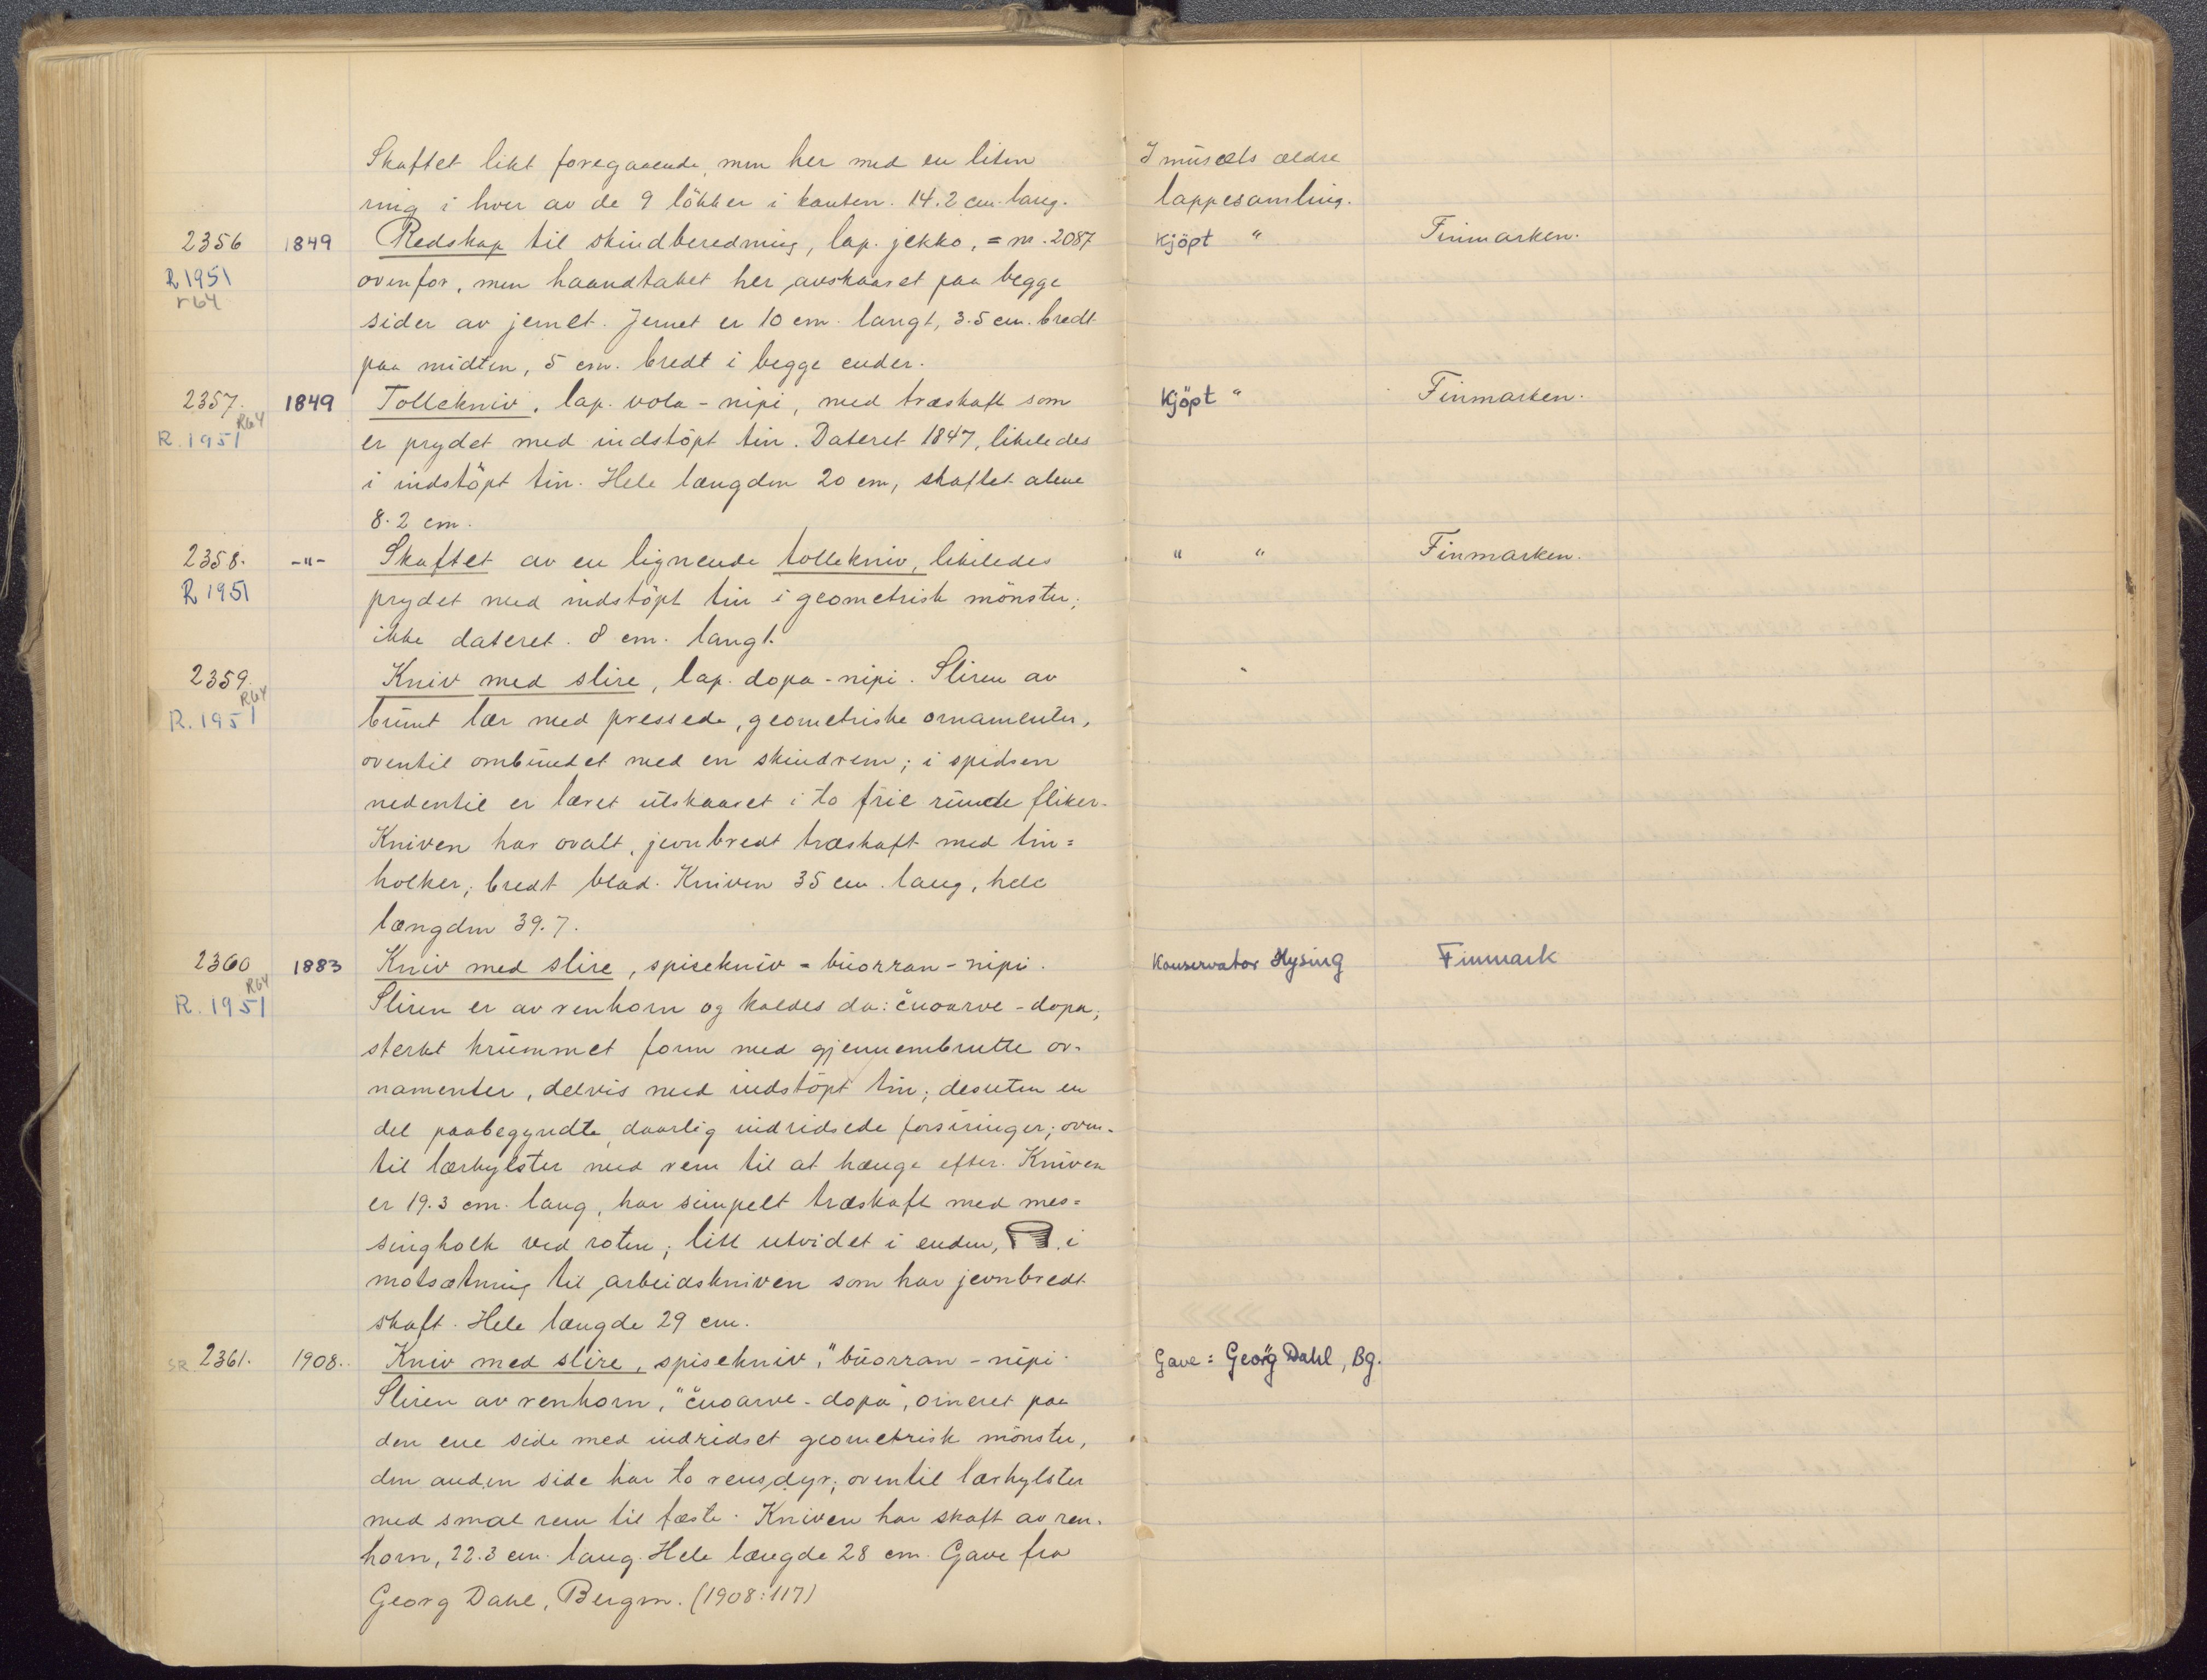 Skaftet likt foregaaende, men her med en liten
ring i hver av de 9 løkker i kanten. 14.2 cm. lang.
I musæets ældre
lappesamling.
2356 1849 Redskap til skindberedning, lap. jekko, = nr. 2087 Kjöpt " Finmarken.
R 1951
r64
ovenfor, men haandtaket her avskaaret paa begge
sider av jernet. Jernet er 10 cm. langt, 3.5 cm. bredt
paa midten, 5 cm. bredt i begge ender.
2357. 1849 Tollekniv, lap. vola-nipi, med træskaft som Kjöpt " Finmarken.
R64
R. 1951
er prydet med indstöpt tin. Dateret 1847, likeledes
i indstöpt tin. Hele længden 20 cm, skaftet alene
8.2 cm.
2358. -"- Skaftet av en lignende tollekniv, likeledes " " Finmarken.
R 1951
prydet med indstöpt tin i geometrisk mönster;
ikke dateret. 8 cm. langt.
2359. Kniv med slire, lap. dopa-nipi. Sliren av
R64
R. 1951
brunt lær med pressede, geometriske ornamenter,
oventil ombundet med en skindrem; i spidsen
nedentil er læret utskaaret i to runde fliker.
Kniven har ovalt, jevnbredt træskaft med tin=
holker; bredt blad. Kniven 35 cm. lang, hele
længden 39.7.
2360 1883 Kniv med slire, spisekniv = buorran-nipi. Konservator Hysing Finmark
R64
R. 1951
Sliren er av renhorn og kaldes da: čuoarve-dopa;
sterkt krummet form med gjennembrutte or-
namenter, delvis med indstöpt tin; desuten en
del paabegyndte, daarlig indridsede forsiringer; oven-
til lærhylster med rem til at hænge efter. Kniven
er 19.3 cm. lang, har simpelt træskaft med mes=
singholk ved roten; litt utvidet i enden, i
motsætning til arbeidskniven som har jevnbredt
skaft. Hele længde 29 cm.
SR 2361. 1908. Kniv med slire, spisekniv, "buorran-nipi" Gave: Georg Dahl, Bg.
Sliren av renhorn, "čuoarve-dopa", orneret paa
den ene side med indridset geometrisk mönster,
den anden side har to rensdyr; oventil lærhylster
med smal rem til fæste. Kniven har skaft av ren-
horn, 22.3 cm. lang. Hele længde 28 cm. Gave fra
Georg Dahl, Bergen. (1908:117)